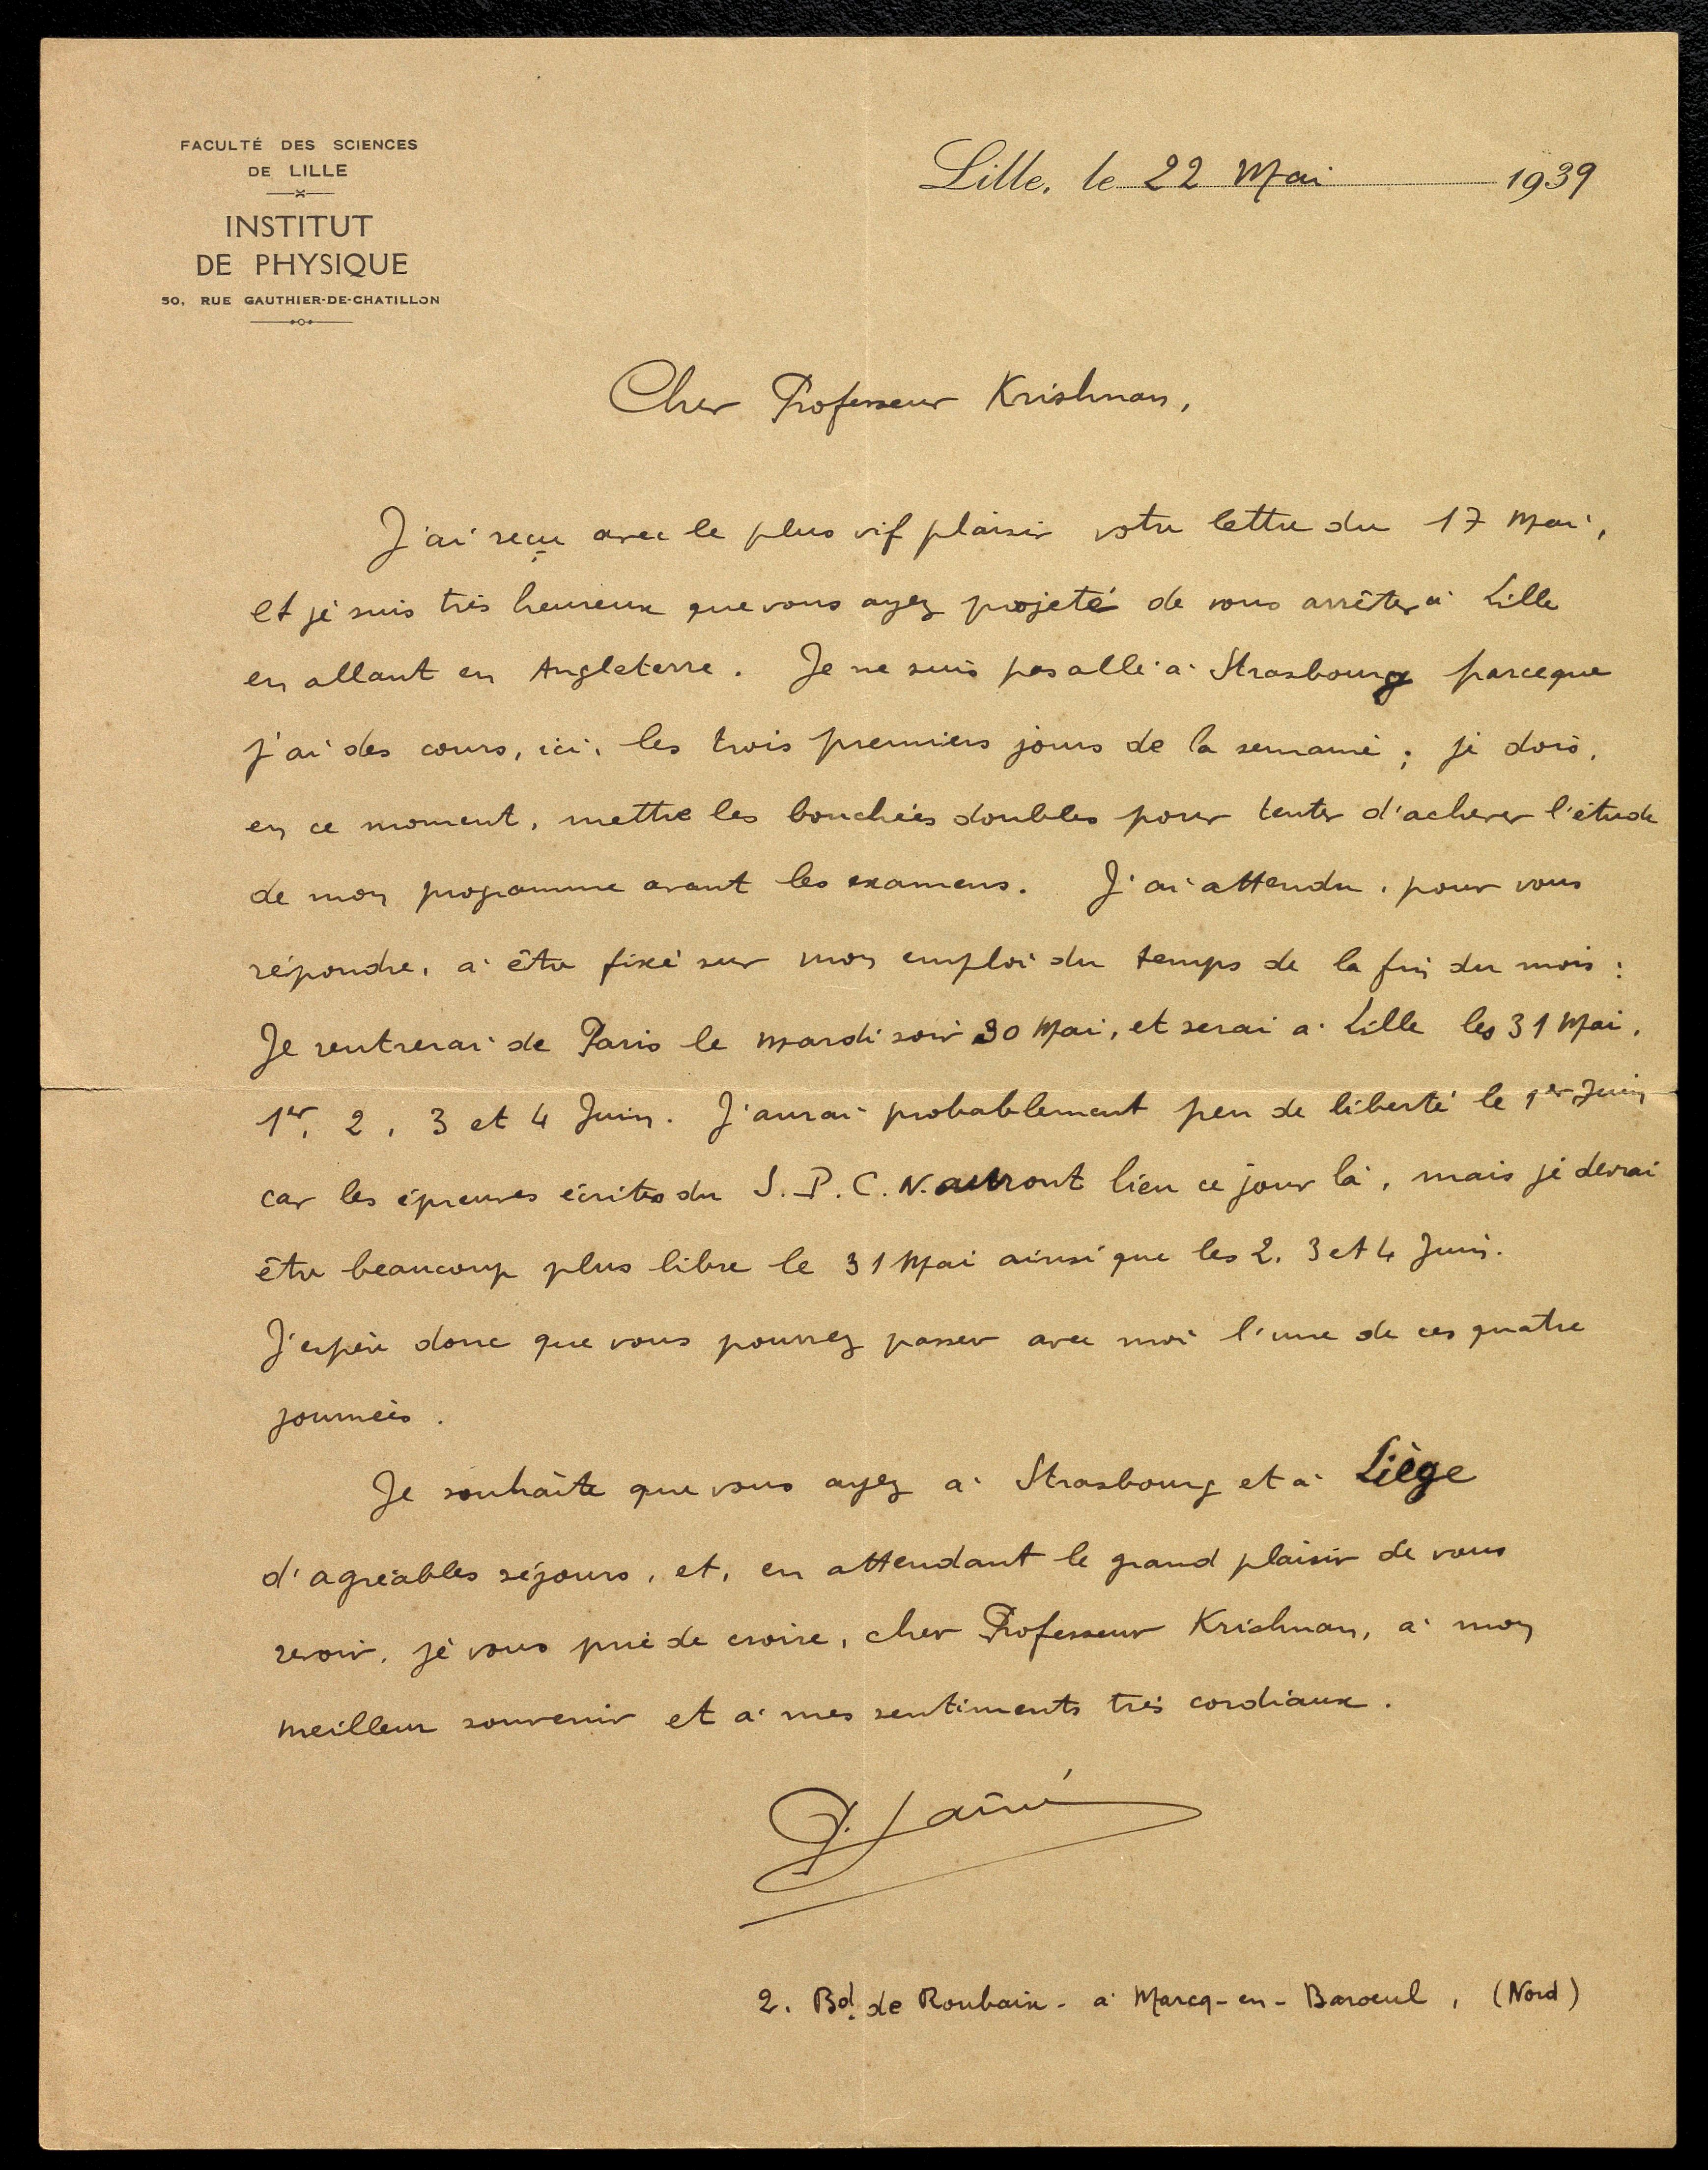 FACULTÉ DES SCIENCES
DE LILLE
INSTITUT
DE PHYSIQUE
50, RUE GAUTHIER-DE-CHATILLON
Lille, le 22 Mai 1939
Cher Professeur Krishnan,
J'ai reçu avec le plus vif plaisir votre lettre du 17 Mai,
et je suis très heureux que vous ayez projeté de vous arrêter à Lille
en allant en Angleterre. Je ne suis pas allé à Strasbourg parceque
j'ai des cours, ici, les trois premiers jours de la semaine ; je dois,
en ce moment, mettre les bouchées doubles pour tenter d'achever l'étude
de mon programme avant les examens. J'ai attendu, pour vous
répondre, à être fixé sur mon emploi du temps de la fin du mois :
Je rentrerai de Paris le mardi soir 30 Mai, et serai à Lille les 31 Mai,
1er, 2, 3 et 4 Juin. J'aurai probablement peu de liberté le 1er Juin
car les épreuves écrites du S.P.C.N. auront lieu ce jour là, mais je devrai
être beaucoup plus libre le 31 Mai ainsi que les 2, 3 et 4 Juin.
J'espère donc que vous pourrez passer avec moi l'une de ces quatre
journées.
Je souhaite que vous ayez à Strasbourg et à Liège
d'agréables séjours, et, en attendant le grand plaisir de vous
revoir, je vous prie de croire, cher Professeur Krishnan, à mon
meilleur souvenir et à mes sentiments très cordiaux.
2, Bd. de Roubaix - à Marcq-en-Baroeul, (Nord)